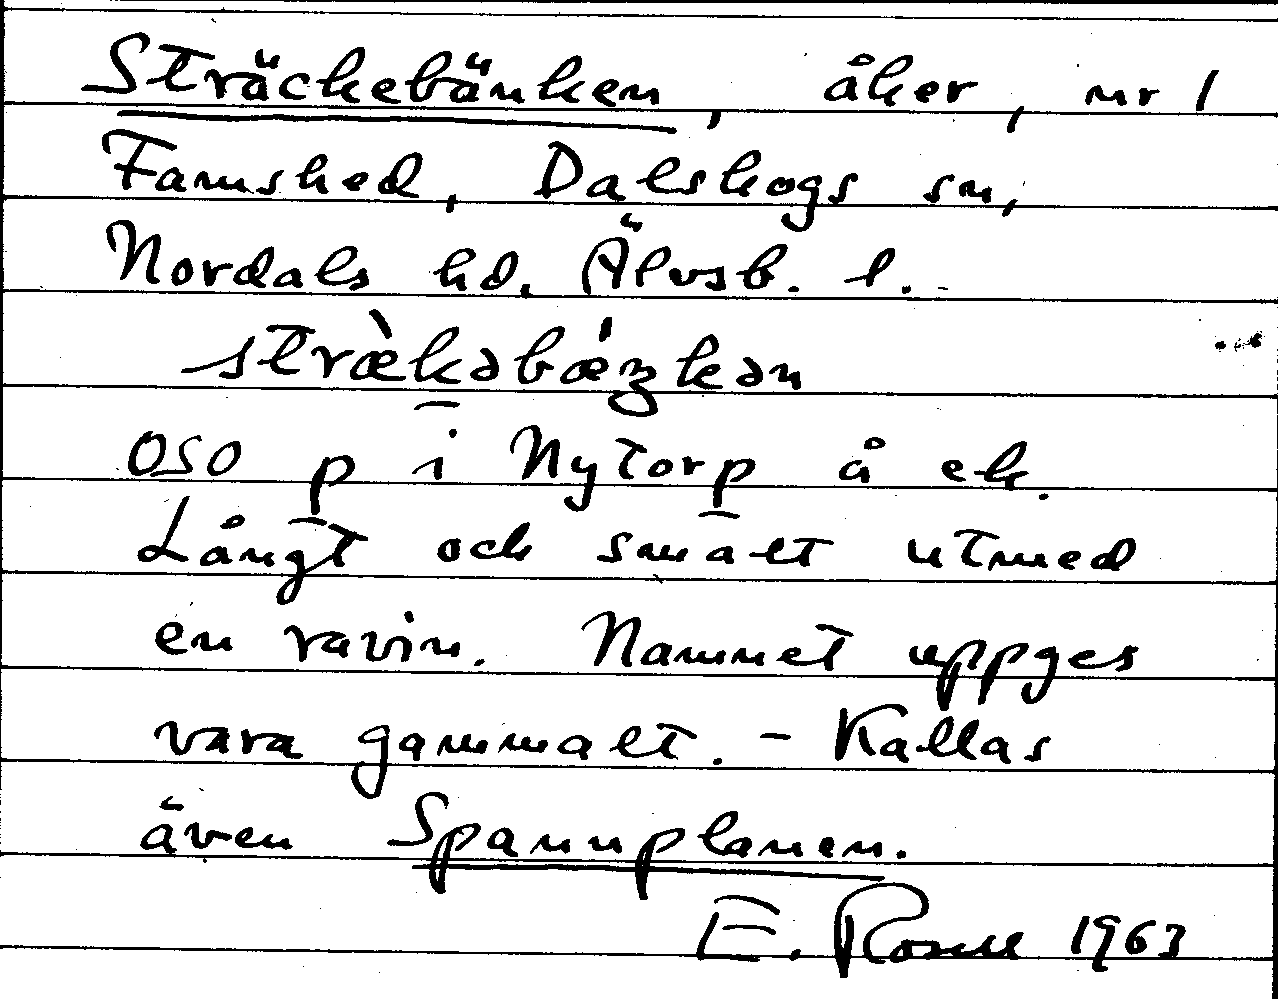 Sträckebänken, åker, nr 1
Famshed, Dalskogs sn,
Nordals hd. Älvsb. l.
stræ̀kəbǽŋkən
OSO p i Nytorp å ek.
Långt och smalt utmed
en ravin. Namnet uppges
vara gammalt. - Kallas
även Spannplanen.
E. Rosell 1963